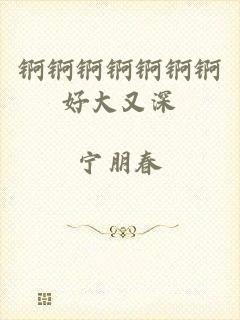 锕锕锕锕锕锕锕
好大又深
宁朋春